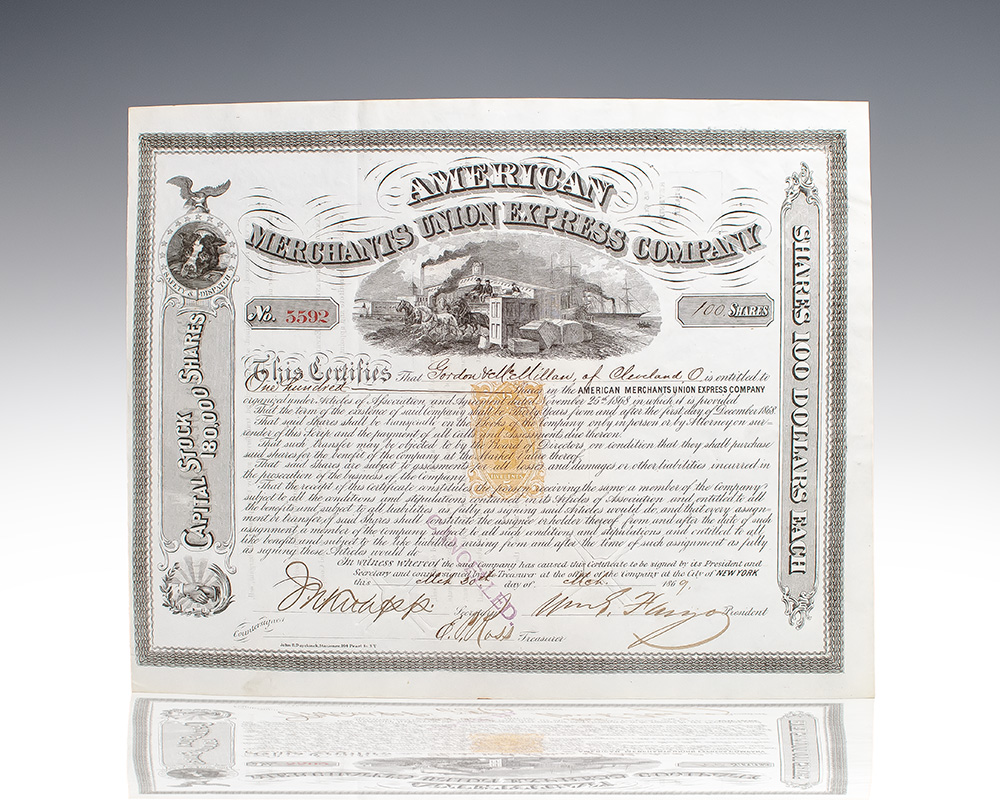 AMERICAN
MERCHANTS UNION EXPRESS COMPANY
SAFETY & DISPATCH
No. 5592
100 SHARES
CAPITAL STOCK
180,000 SHARES
SHARES 100 DOLLARS EACH
This Certifies That Gordon & McMillan, of Cleveland O. is entitled to
One hundred Shares in the AMERICAN MERCHANTS UNION EXPRESS COMPANY
organized under Articles of Association and dated November 25th 1868 in which it is provided
That the term of the existence of said Company shall be thirty years from and after the first day of December 1868.
That said Shares shall be transferable on the Books of the Company only in person or by Attorney on sur-
render of this Scrip and the payment of all calls and Assessments due thereon.
That such Transfer may be objected to by the Board of Directors on condition that they shall purchase
said shares for the benefit of the Company at the Market Value thereof.
That said shares are subject to assessments for all losses and damages or other liabilities incurred in
the prosecution of the business of the Company.
That the receipt of this certificate constitutes the person receiving the same a member of the Company
subject to all the conditions and stipulations contained in its Articles of Association and entitled to all
the benefits and subject to all liabilities as fully as signing said Articles would do, and that every assign-
ment or transfer of said Shares shall constitute the assignee or holder thereof from and after the date of such
assignment a member of the Company subject to all such conditions and stipulations and entitled to all
like benefits and subject to the like liabilities arising from and after the time of such assignment as fully
as signing these Articles would do.
In witness whereof the said Company has caused this Certificate to be signed by its President and
Secretary and countersigned by its Treasurer at the office of the Company at the City of NEW YORK
this day of 1869.
CANCELLED.
Secretary Wm G. Fargo President
Countersigned
Treasurer